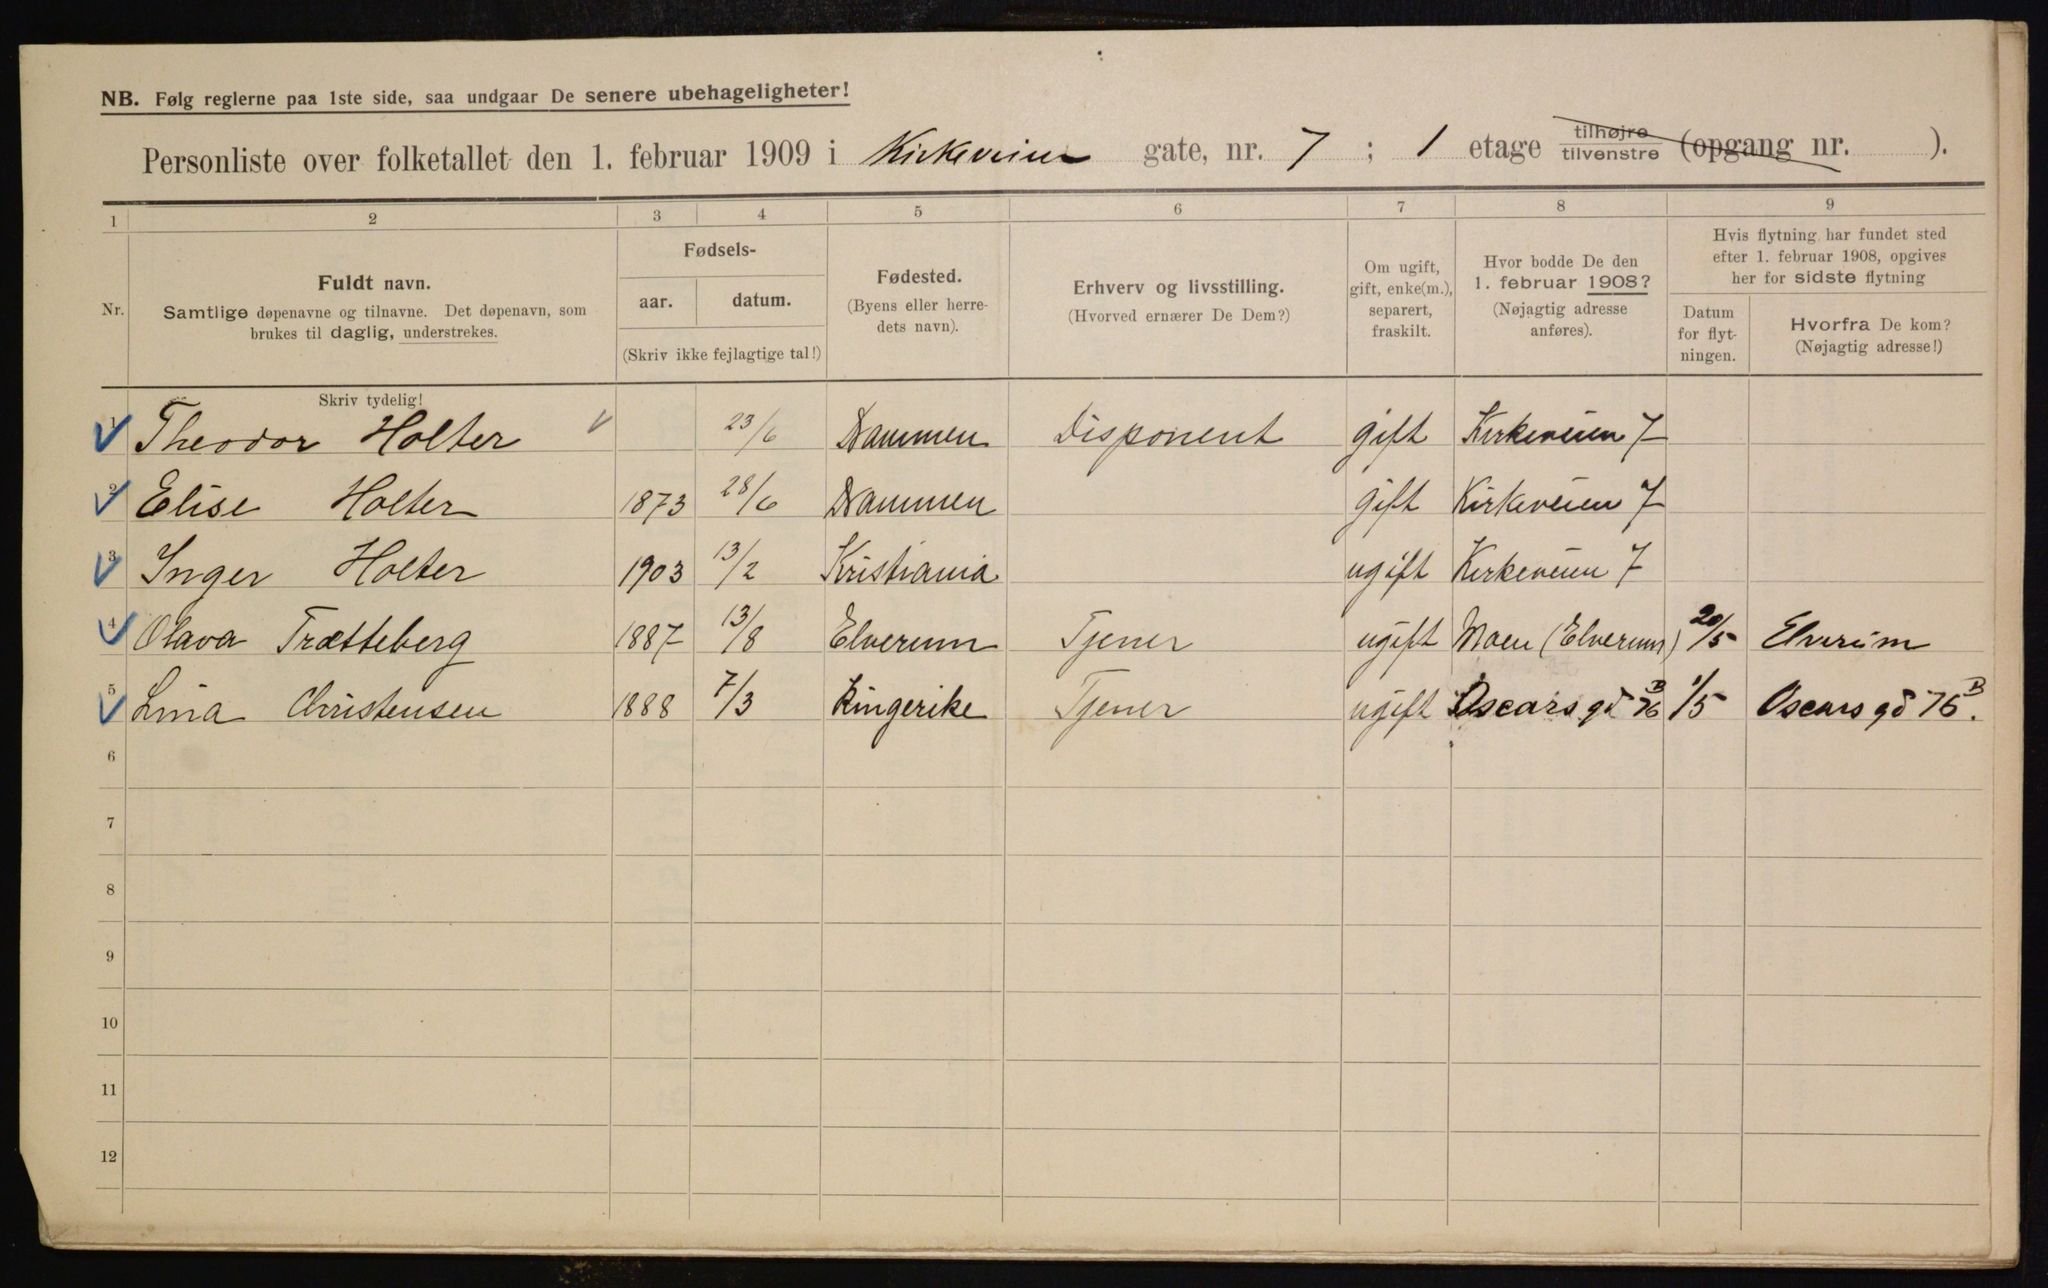 NB. Følg reglerne paa 1ste side, saa undgaar De senere ubehageligheter!
Personliste over folketallet den 1. februar 1909 i Kirkeveien gate, nr. 7 ; 1 etage tilhøjre tilvenstre (opgang nr. ).
1 2 3 4 5 6 7 8 9
Nr.
Fuldt navn.
Samtlige døpenavne og tilnavne. Det døpenavn, som
brukes til daglig, understrekes.
Fødsels-
aar. datum.
(Skriv ikke fejlagtige tal!)
Fødested.
(Byens eller herre-
dets navn).
Erhverv og livsstilling.
(Hvorved ernærer De Dem?)
Om ugift,
gift, enke(m.),
separert,
fraskilt.
Hvor bodde De den
1. februar 1908?
(Nøjagtig adresse
anføres).
Hvis flytning har fundet sted
efter 1. februar 1908, opgives
her for sidste flytning
Datum
for flyt-
ningen.
Hvorfra De kom?
(Nøjagtig adresse!)
Skriv tydelig!
1 Theodor Holter 23/6 Drammen Disponent gift Kirkeveien 7
2 Elise Holter 1873 28/6 Drammen gift Kirkeveien 7
3 Inger Holter 1903 13/2 Kristiania ugift Kirkeveien 7
4 Olava Trætteberg 1887 13/8 Elverum Tjener ugift Moen (Elverum) 20/5 Elverum
5 Lina Christensen 1888 7/3 Ringerike Tjener ugift Oscars gd 76 B 1/5 Oscars gd 76 B.
6
7
8
9
10
11
12